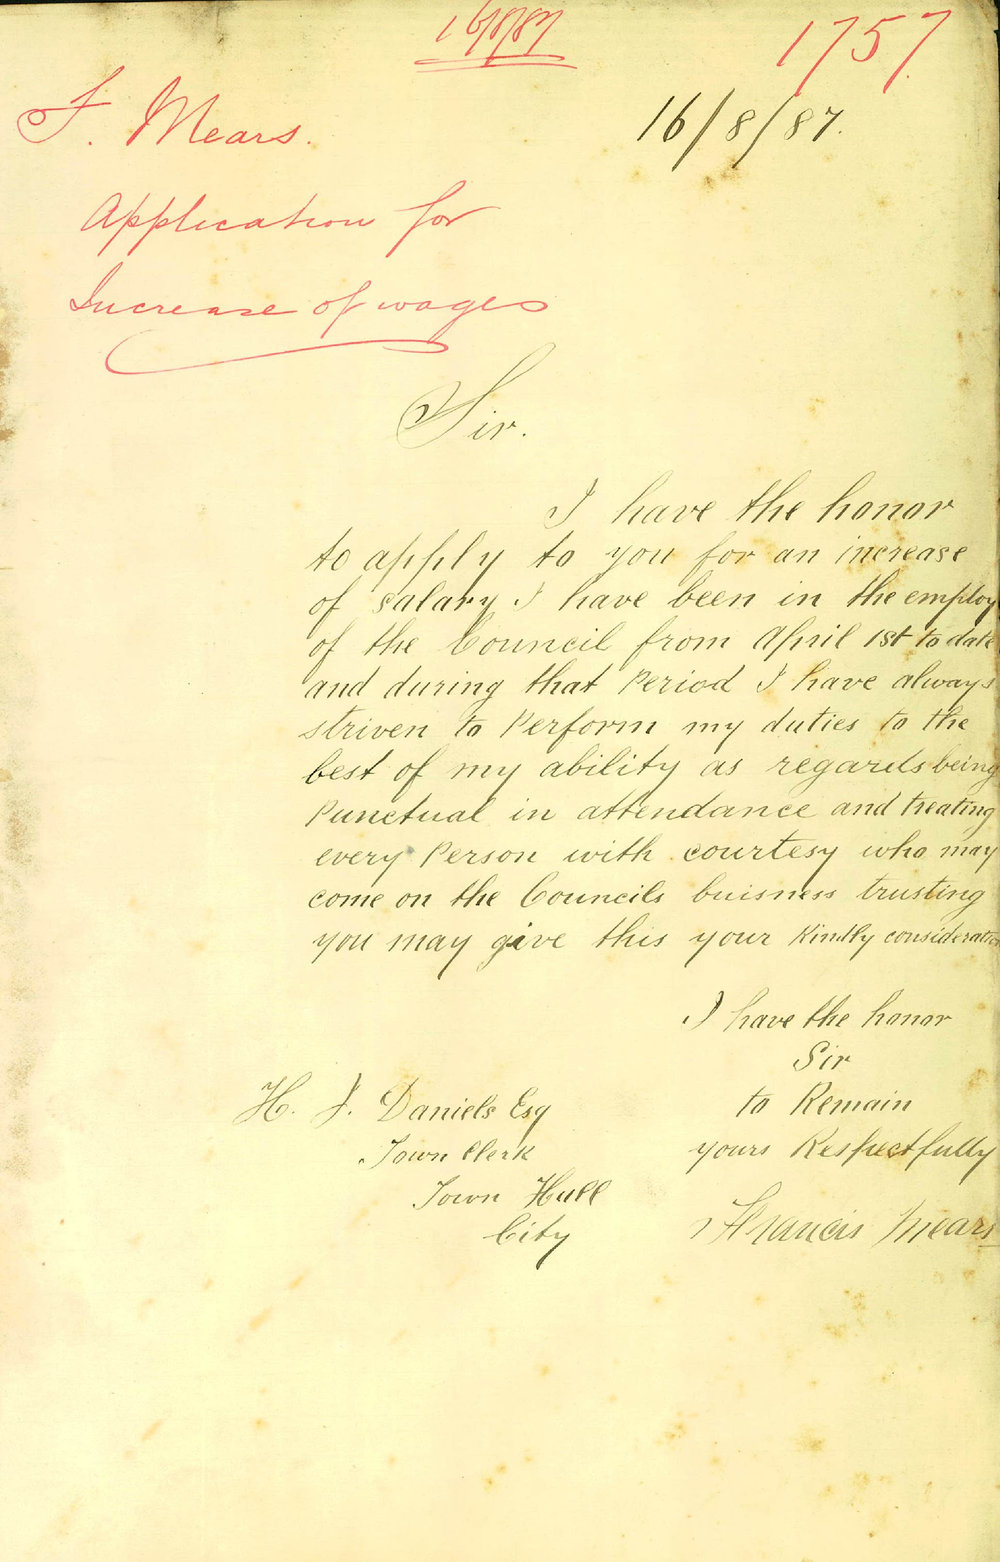 16/8/87
1757
F. Mears.
16/8/87.
Application for
Increase of wages
Sir.
I have the honor
to apply to you for an increase
of salary I have been in the employ
of the Council from April 1st to date
and during that Period I have always
striven to Perform my duties to the
best of my ability as regards being
Punctual in attendance and treating
every Person with courtesy who may
come on the Councils buisness trusting
you may give this your Kindly consideration
I have the honor
Sir
to Remain
yours Respectfully
Francis Mears
H. J. Daniels Esq
Town Clerk
Town Hall
City